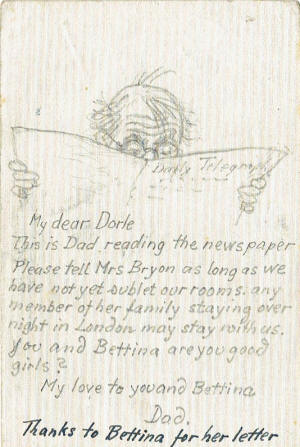 Daily Telegraph
My dear Dorle
This is Dad reading the newspaper
Please tell Mrs Bryon as long as we
have not yet sublet our rooms. any
member of her family staying over
night in London may stay with us.
You and Bettina are you good
girls?
My love to you and Bettina
Dad.
Thanks to Bettina for her letter